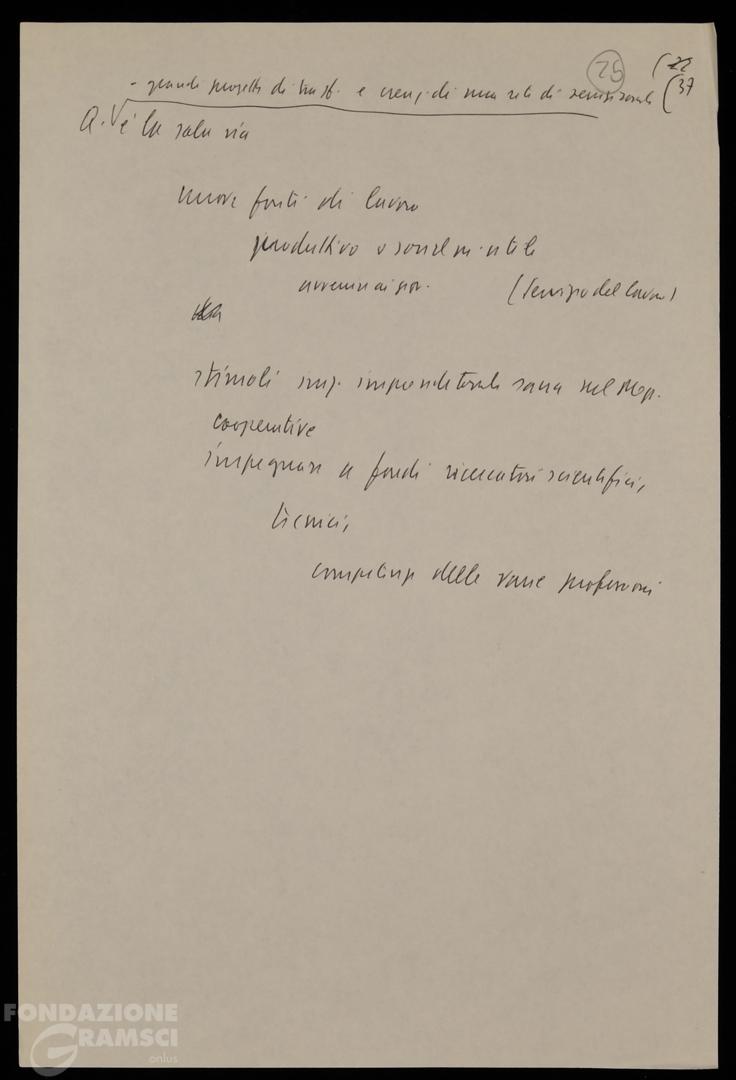 25
22
37
- grandi progetti di trasf. e creaz. di una rete di servizi sociali
Q. è la sola via
nuove fonti di lavoro
produttivo o socialm. utile
(Servizio del lavoro)
stimoli imp. imprenditoriale sana nel Mezz.
cooperative
impegnare a fondo ricercatori scientifici,
tecnici,
competenze delle varie professioni
FONDAZIONE
GRAMSCI
onlus